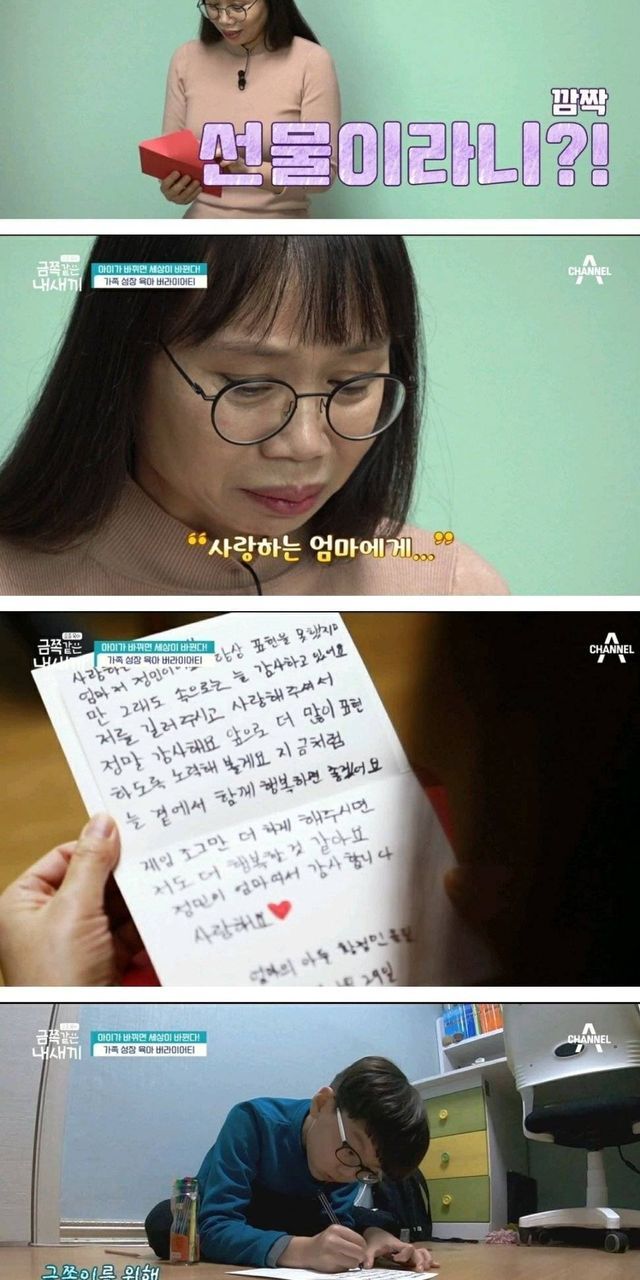 깜짝
선물이라니?!
금쪽같은
내새끼
아이가 바뀌면 세상이 바뀐다!
가족 성장 육아 버라이어티
CHANNEL A
“사랑하는 엄마에게...”
금쪽같은
내새끼
아이가 바뀌면 세상이 바뀐다!
가족 성장 육아 버라이어티
CHANNEL A
사랑하는
엄마 저 정민이 항상 표현을 못했지
만 그래도 속으로는 늘 감사하고 있어요
저를 길러주시고 사랑해주셔서
정말 감사해요 앞으로 더 많이 표현
하도록 노력해 볼게요 지금처럼
늘 곁에서 함께 행복하면 좋겠어요
게임 조그만 더 하게 해주시면
저도 더 행복할 것 같아요
정민이 엄마여서 감사합니다
사랑해요
엄마의 아들 정민
29일
금쪽같은
내새끼
아이가 바뀌면 세상이 바뀐다!
가족 성장 육아 버라이어티
CHANNEL A
금쪽이를 위해